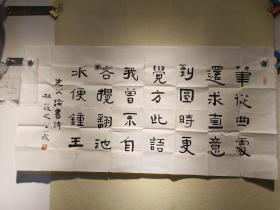 筆從曲處
還求直意
到圓時更
覺方此語
我曾不自
吝攪翻池
水便鍾王
論書詩